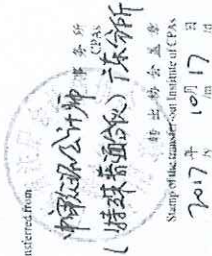 nsferred from
事务所
CPAs
中审众环会计师
(特殊普通合伙)广东分所
转出协会盖章
Stamp of the transfer-out Institute of CPAs
2017年10月17日
/y /m /d